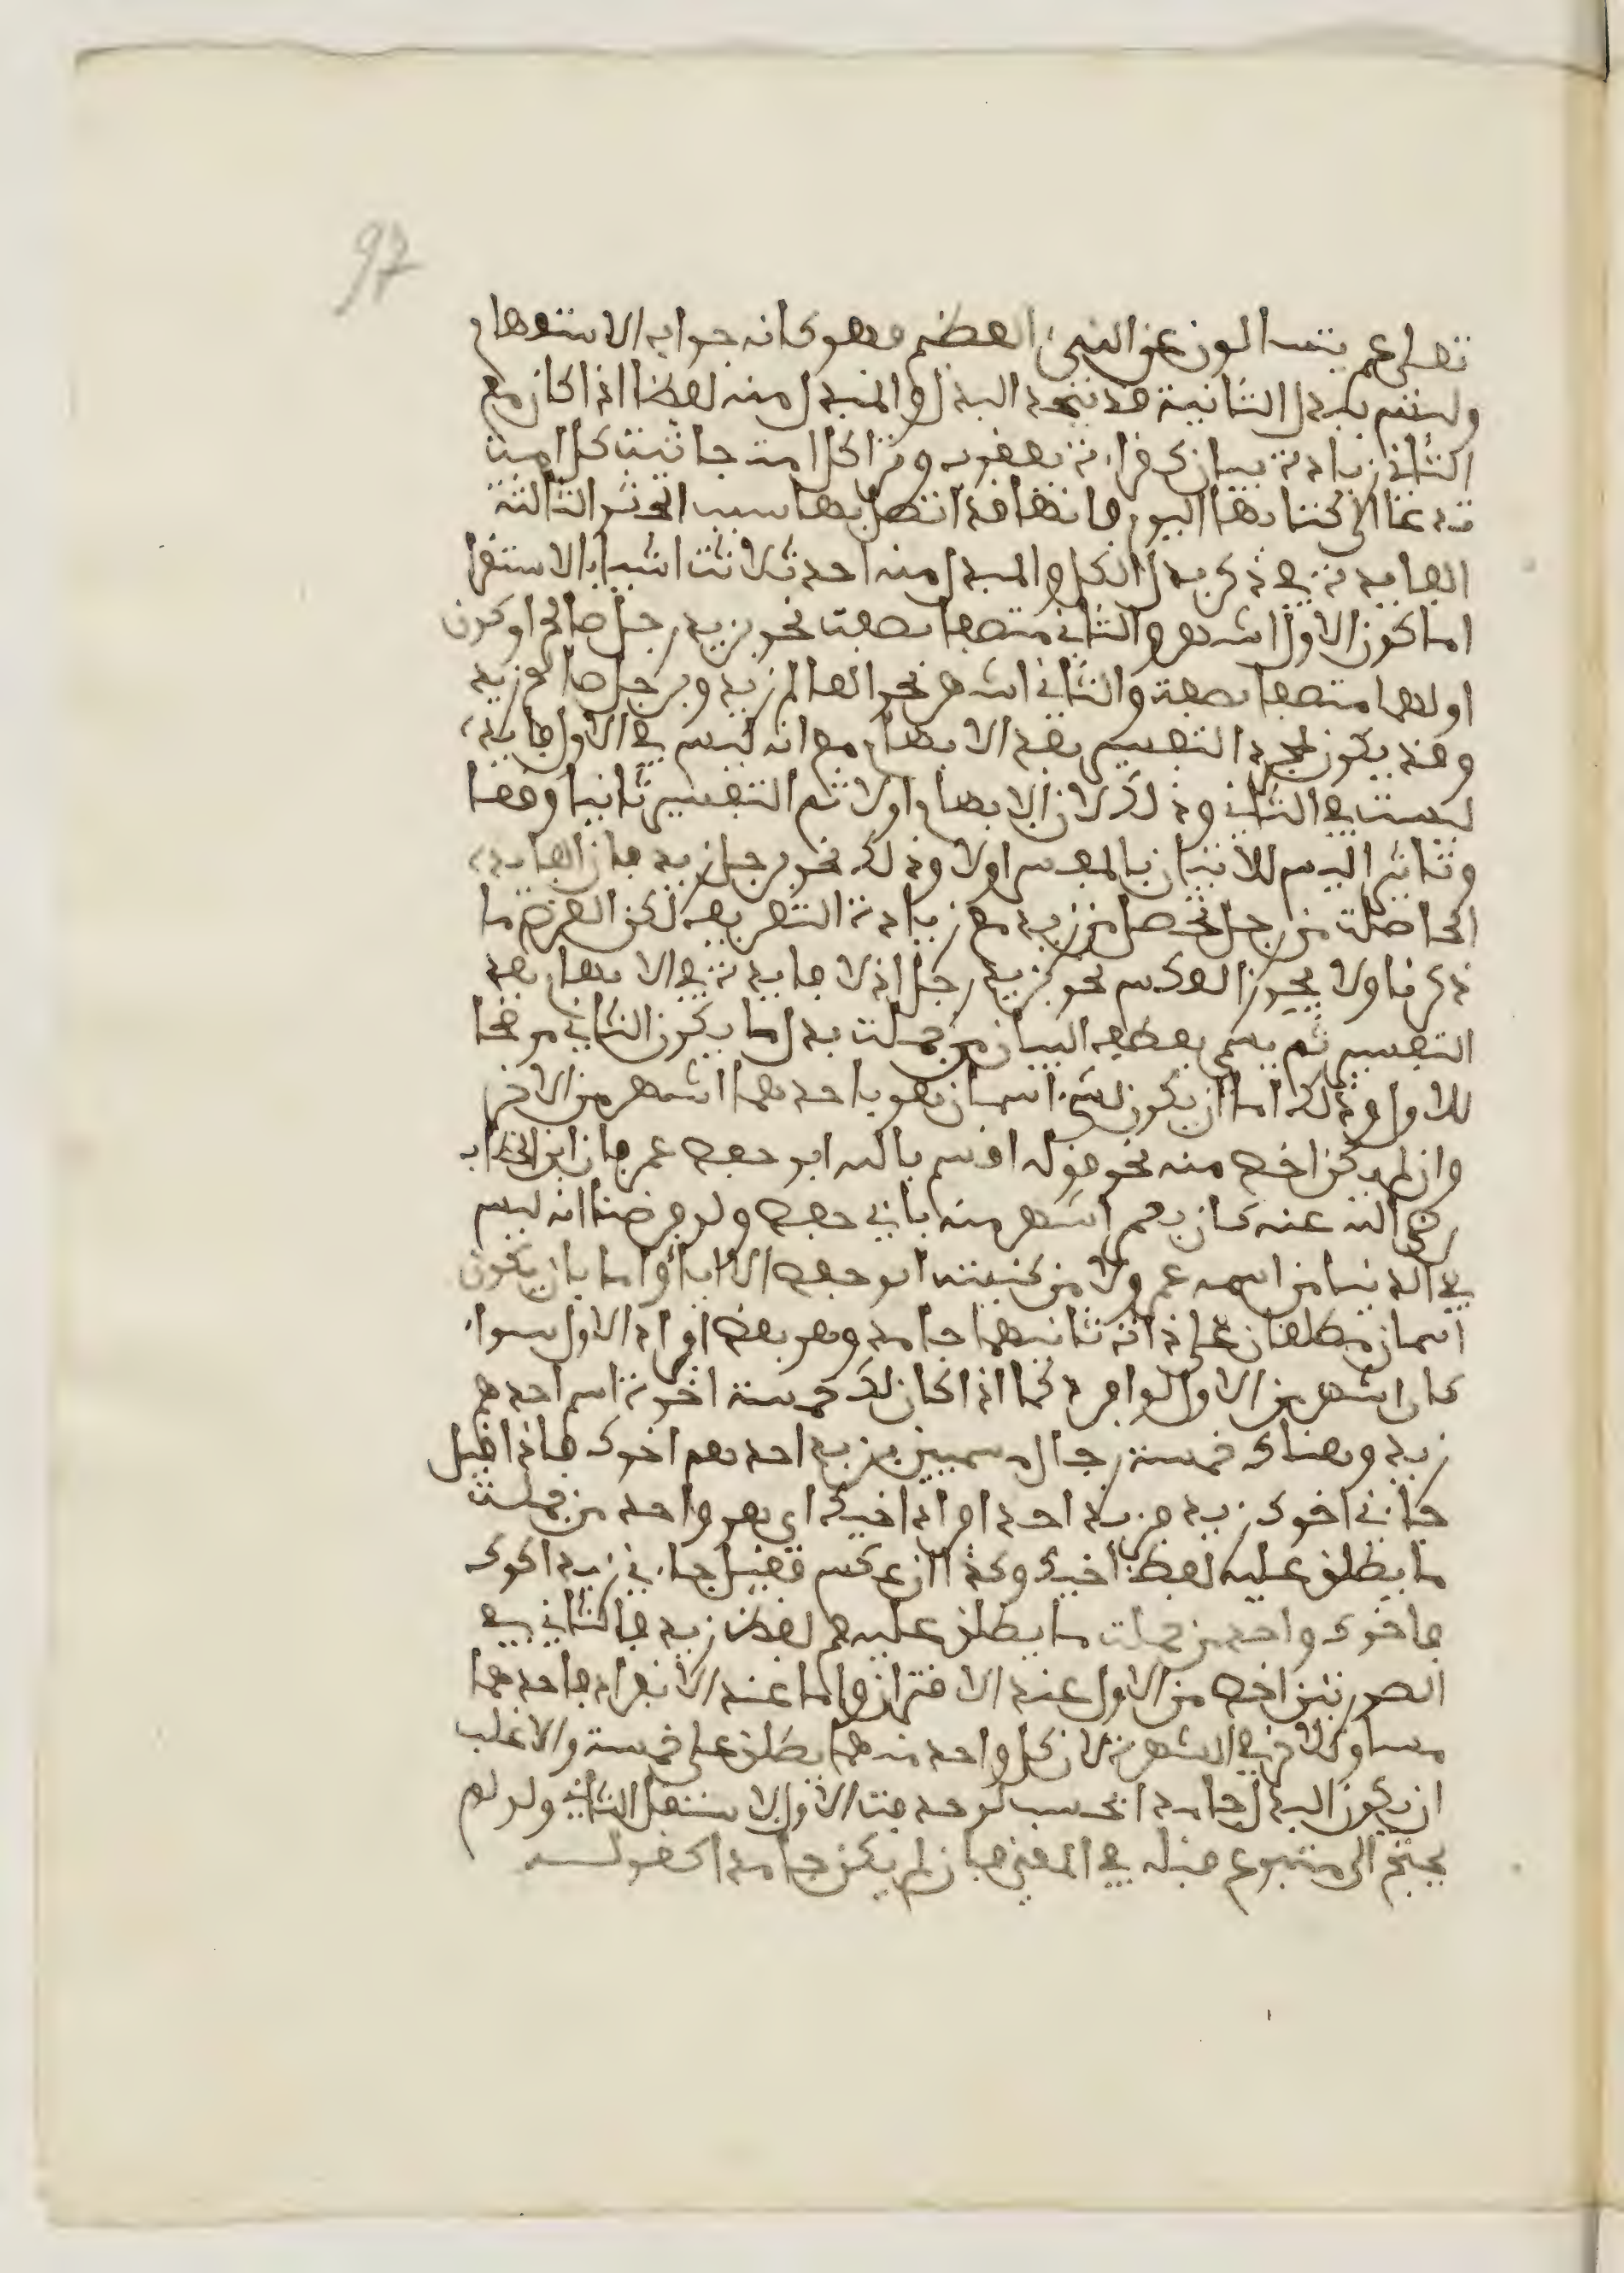 97
تعلى عم يتسالون عن النبئ العظيم فهو كانه جواب الاستفهام
وليس ببدل الثانية قد يتحد البدل والمبدل منه لفظا اذا كان مع
الثاني زيادة بيان كقراءة يعقوب وترا كل امت جاثيت كل امت
تدعا الى كتابها اليوم فانها قد اتصل بها سبب الجثو الثالثة
الفايدة في ذكر بدل الكل والمبدل منه احد ثلاثت اشيا بالاستقرا
اما كون الاول اشهر والثاني متصفا بصفت نحو بزيد رجل صالح او كون
اولهما متصفا بصفة والثاني اشهر نحو العالم زيد وبرجل صالح زيد
وقد يكون لمجرد التفسير بعد الابهام مع انه ليس في الاول فايدة
ليست في الثاني وذلك لان الابهام اولا ثم التفسير ثانيا وقعا
وتاثيرا ليس للاتيان بالمفسر اولا وذلك نحو برجل زيد فان الفايدة
الحاصلت من رجل تحصل من زيد مع زيادة التعريف لكن الغرض ما
ذكرنا ولا يجوز العكس نحو بزيد رجل اذ لا فايدة في الابهام بعد
التفسير ثم يسمى بعطف البيان من جملت بدل ما يكون الثاني موضحا
للاول وذلك اما ان يكون لشيء اسمان هو باحدهما اشهر من الاخر
وان لم يكن اخص منه نحو قوله اقسم بالله ابو حفص عمر فان ابن الخطاب
رضي الله عنه كان بعمر اشهر منه بابي حفص ولو فرضنا انه ليس
في الدنيا من اسمه عمر ولا من كنيته ابو حفص الا اياه واما بان يكون
اسمان مطلقان على ذات ثانيهما جامد وهو بعض افراد الاول سواء
كان اشهر من الاول لو افرد كما اذا كان لك خمسة اخوة اسم احدهم
زيد وهناك خمسة رجال مسميين بزيد احدهم اخوك فاذا قيل
جاءني اخوك زيد فزيد احد افراد اخيك اي هو واحد من جملت
ما يطلق عليه لفظ اخيك وكذا ان عكس فقيل جاءني زيد اخوك
فاخوك واحد من جملت ما يطلق عليهم لفظ زيد فالثاني في
الصورتين اخص من الاول عند الاقتران واما عند الانفراد فاحدهما
مساو للاخر في الشهرة لان كل واحد منهما يطلق على خمسة والاغلب
ان يكون البدل جامدا بحسب لو حذفت الاول لاستقل الثاني ولو لم
يحتج الى متبوع قبله في المعنى فان لم يكن جامدا كقوله